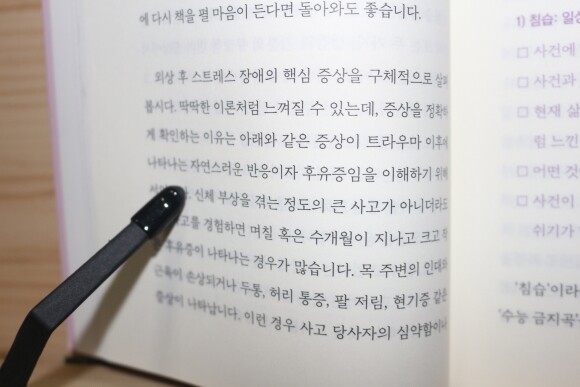 에 다시 책을 펼 마음이 든다면 돌아와도 좋습니다.
외상 후 스트레스 장애의 핵심 증상을 구체적으로
봅시다. 딱딱한 이론처럼 느껴질 수 있는데, 증상을 정확하
게 확인하는 이유는 아래와 같은 증상이 트라우마 이후에
나타나는 자연스러운 반응이자 후유증임을 이해하기 위해
신체 부상을 겪는 정도의 큰 사고가 아니더라도
경험하면 며칠 혹은 수개월이 지나고 크고
후유증이 나타나는 경우가 많습니다. 목 주변의 인대와
근육이 손상되거나 두통, 허리 통증, 팔 저림, 현기증 같은
증상이 나타납니다. 이런 경우 사고 당사자의 심약함이나
1) 침습: 일상
□ 사건에
□ 사건과
□ 현재 삶
럼 느낀
□ 어떤 것
□ 사건이
쉬기가
'침습'이라
'수능 금지곡'